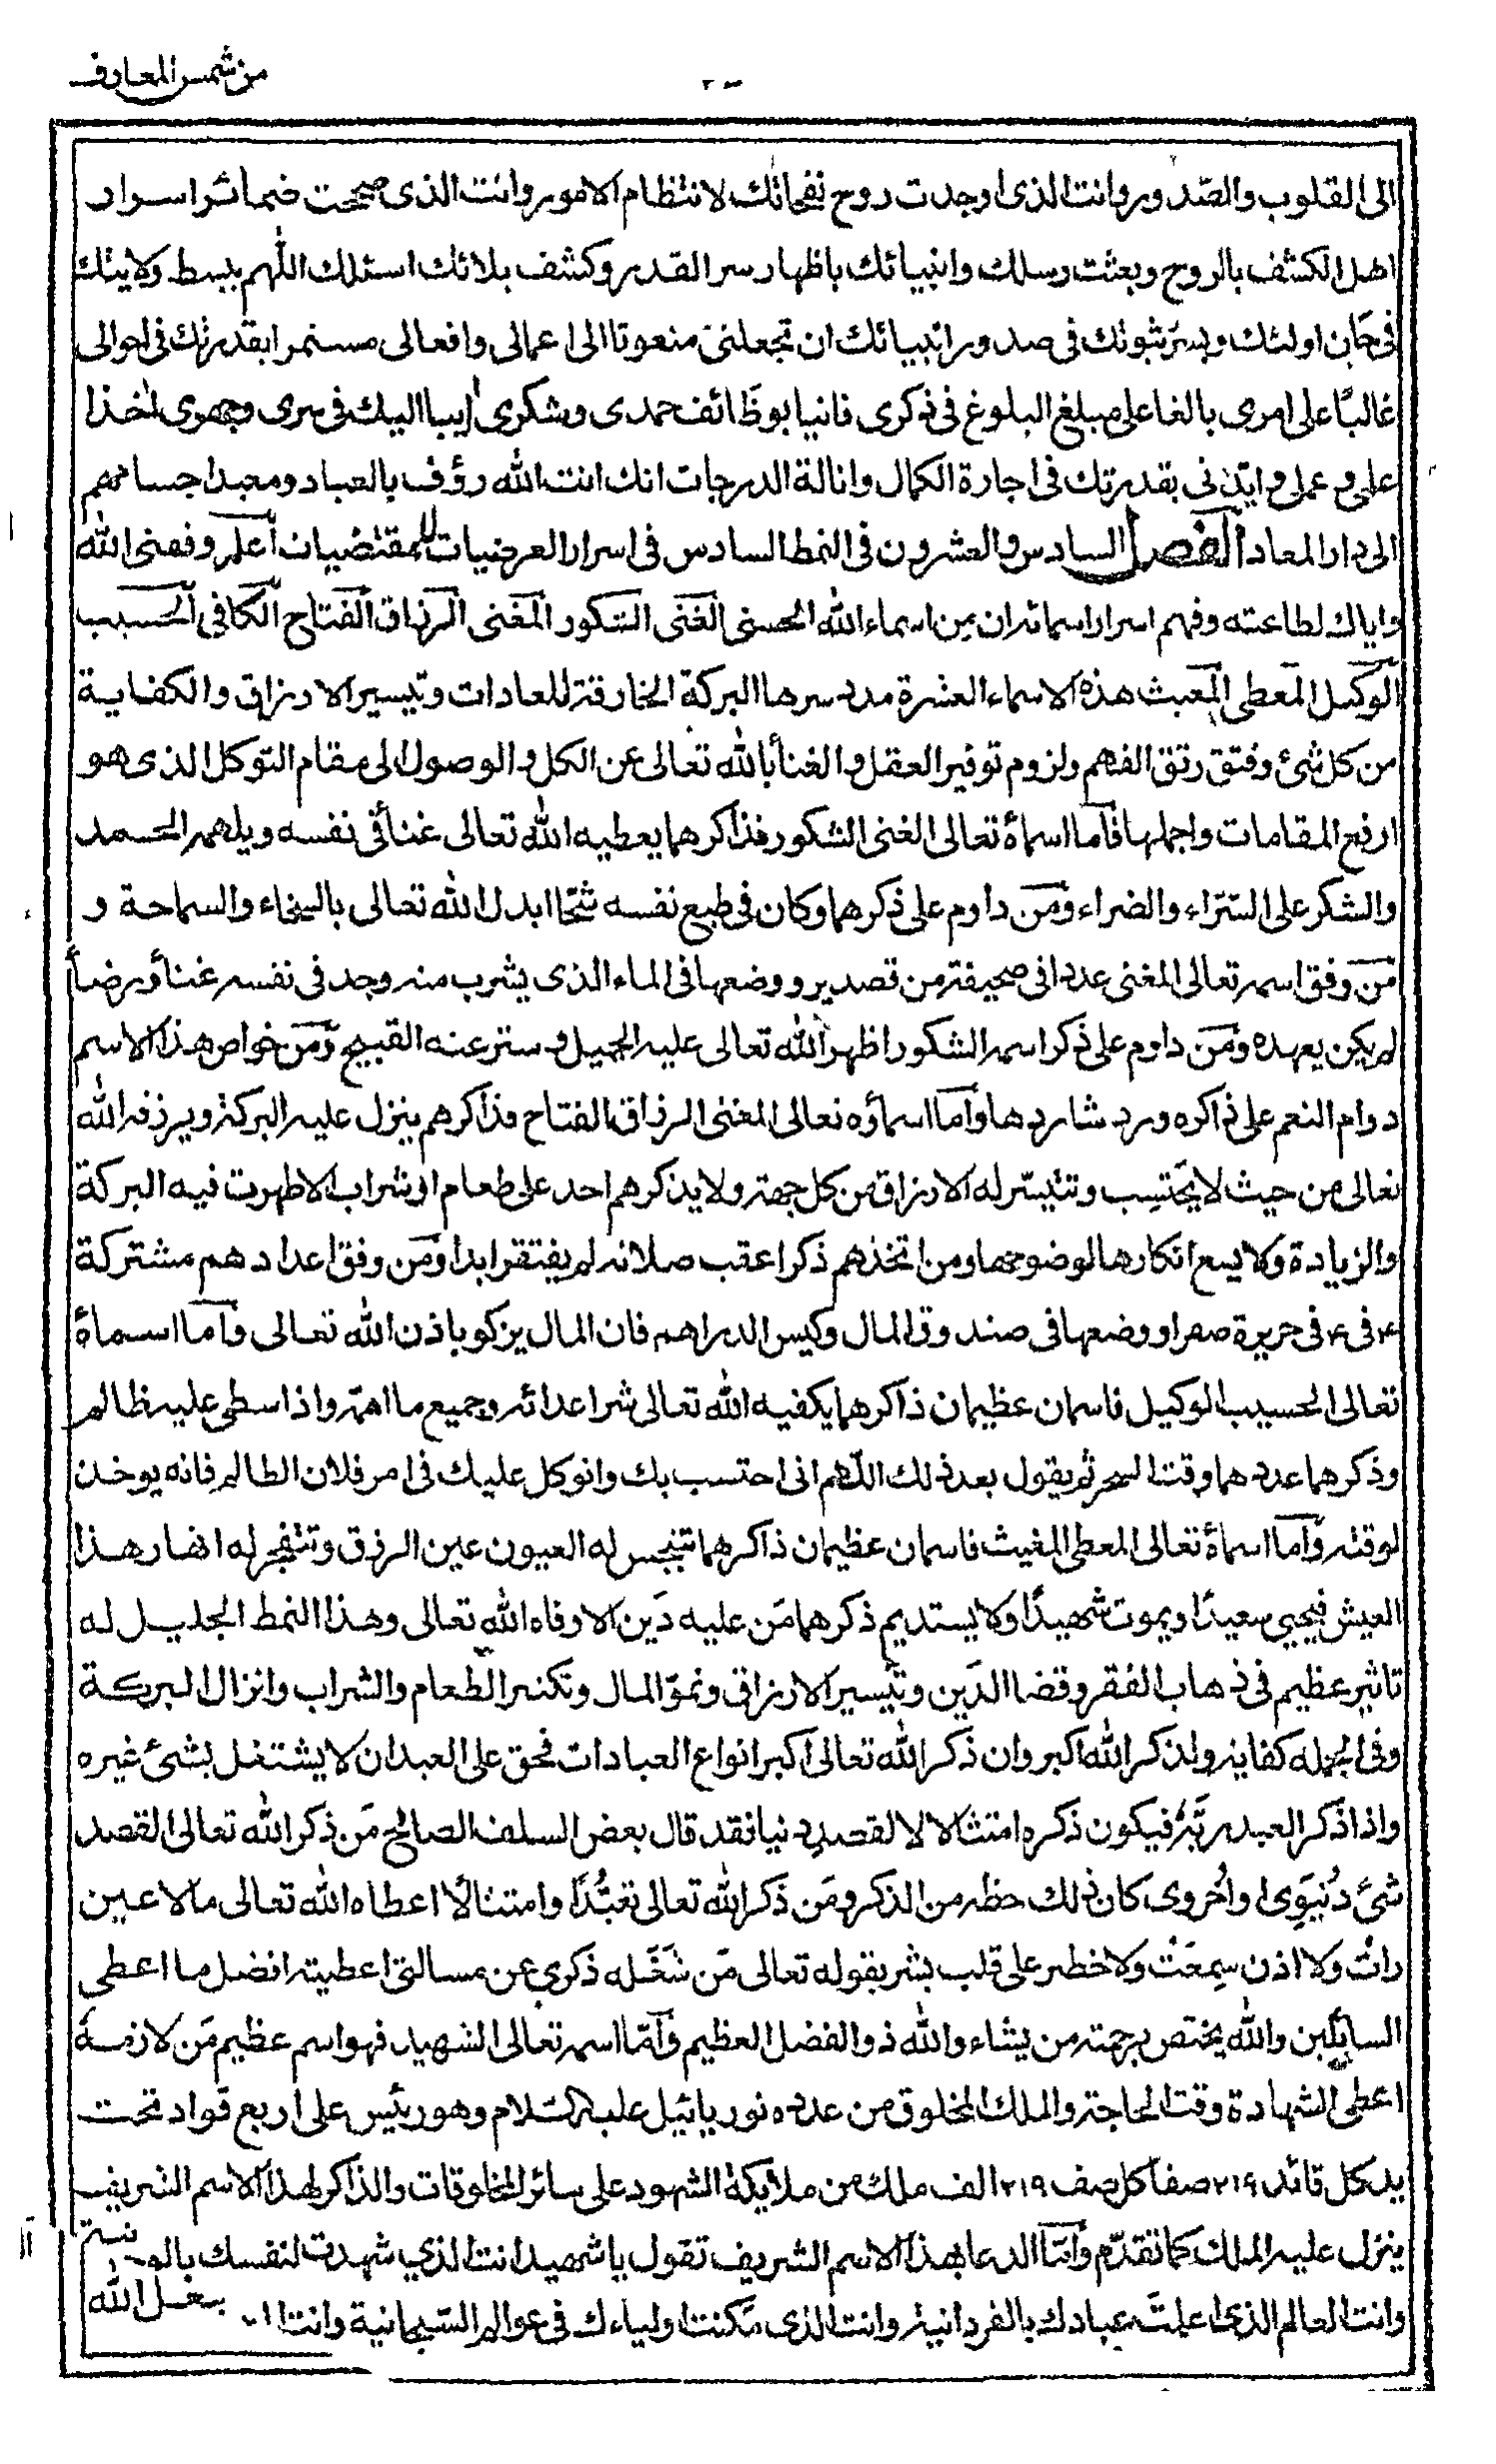 من شمس المعارف
الى القلوب والصدور وانت الذى اوجدت روح نفحاتك لانتظام الامور وانت الذى صححت ضمائر اسرار
اهل الكشف بالروح وبعثت رسلك وانبيائك باظهار سر القدر وكشف بلائك اسئلك اللهم ببسط ولايتك
فى اولئك وبسر ثبوتك فى صدور انبيائك ان تجعلنى منعوتا الى اعمالى وافعالى مستمرا بقدرتك فى احوالى
غالبًا على امرى بالغا على مبلغ البلوغ فى ذكرى فانيا بوظائف حمدى وشكرى ايبا اليك فى سرى وجهرى اخذا
على وعملى وايدنى بقدرتك فى اجارة الكمال وانالة الدرجات انك انت الله رؤف بالعباد ومعبد اجسامهم
الى دار المعاد الفصل السادس والعشرون فى النمط السادس فى اسرار العرضيات للمقتضيات اعلم وفقنى الله
واياك لطاعته وفهم اسرار اسمائه ان من اسماء الله الحسنى الغنى الشكور المغنى الرزاق الفتاح الكافى الحسيب
الوكيل المعطى المغيث هذه الاسماء العشرة مدد سرها البركة الخارقة للعادات وتيسير الارزاق والكفاية
من كل شئ وفتق رتق الفهم ولزوم توفير العقل والغنأ بالله تعالى عن الكل والوصول الى مقام التوكل الذى هو
ارفع المقامات واجملها فاما اسمأه تعالى الغنى الشكور فذاكرهما يعطيه الله تعالى غنأ فى نفسه ويلهمه الحمد
والشكر على السرّاء والضراء ومن داوم على ذكرهما وكان فى طبع نفسه شحّا ابدل الله تعالى بالسخاء والسماحة و
من وفق اسمه تعالى المغنى عددا فى صحيفة من قصدير ووضعها فى الماء الذى يشرب منه وجد فى نفسه غنأ ورضأ
لم يكن يعهده ومن داوم على ذكر اسمه الشكور اظهر الله تعالى عليه الجميل وستر عنه القبيح ومن خواص هذا الاسم
دوام النعم على ذاكره ورد شاردها واما اسماؤه تعالى المغنى الرزاق الفتاح فذاكرهم ينزل عليه البركة ويرزقه الله
تعالى من حيث لا يحتسب وتتيسّر له الارزاق من كل جهة ولا يذكرهم احد على طعام او شراب الا ظهرت فيه البركة
والزيادة ولا يسع انكارها لوضوحها ومن اتخذهم ذكرا عقب صلاته لم يفتقر ابدا ومن وفق اعدادهم مشتركة
۴ فى ۴ فى حريرة صفرا ووضعها فى صندوق المال وكيس الدراهم فان المال يزكو باذن الله تعالى واما اسمأه
تعالى الحسيب الوكيل فاسمان عظيمان ذاكرهما يكفيه الله تعالى شر اعدائه وجميع ما اهمّه واذا سطى عليه ظالم
وذكرهما عددهما وقت السحر ثم يقول بعد ذلك اللهم انى احتسب بك واتوكل عليك فى امر فلان الظالم فانه يوخذ
لوقته واما اسمأه تعالى المعطى المغيث فاسمان عظيمان ذاكرهما تنبجس له العيون عين الرزق وتتفجر له انهار هذا
العيش فيحيى سعيدًا ويموت شهيدًا ولا يستديم ذكرهما مَن عليه دَين الا وفاه الله تعالى وهذا النمط الجليل له
تاثير عظيم فى ذهاب الفقر وقضا الدَين وتيسير الارزاق ونموّ المال وتكثير الطعام والشراب وانزال البركة
وفى الجمله كفاية ولذكر الله اكبر وان ذكر الله تعالى اكبر انواع العبادات فحق على العبد ان لا يشتغل بشئ غيره
واذا ذكر العبد ربّه فيكون ذكره امتثالا لا لقصد دنيا فقد قال بعض السلف الصالح مَن ذكر الله تعالى لقصد
شئ دُنيَوِى او اُخروى كان ذلك حظه من الذكر ومَن ذكر الله تعالى تعبُّدًا وامتثالًا اعطاه الله تعالى ما لا عين
رأت ولا اذن سمِعَت ولا خطر على قلب بشر بقوله تعالى مَن شَغَله ذكرى عن مسالتى اعطيته افضل ما اعطى
السايلين والله يختص برحمته من يشاء والله ذو الفضل العظيم وامّا اسمه تعالى الشهيد فهو اسم عظيم مَن لازمه
اعطى الشهادة وقت الحاجة والملك المخلوق من عدده نوريائيل عليه السلام وهو رئيس على اربع قواد تحت
يد كل قائد ٢١٩ صفا كل صف ٢١٩ الف ملك من ملايكة الشهود على سائر المخلوقات والذاكر لهذا الاسم الشريف
ينزل عليه الملك كما تقدّم وامّا الدعا بهذا الاسم الشريف تقول يا شهيد انت الذى شهدت لنفسك
وانت العالم الذى اعلمت عبادك بالفردانية وانت الذى مكنت اولياءك فى عوالم السبحانية وانت الله